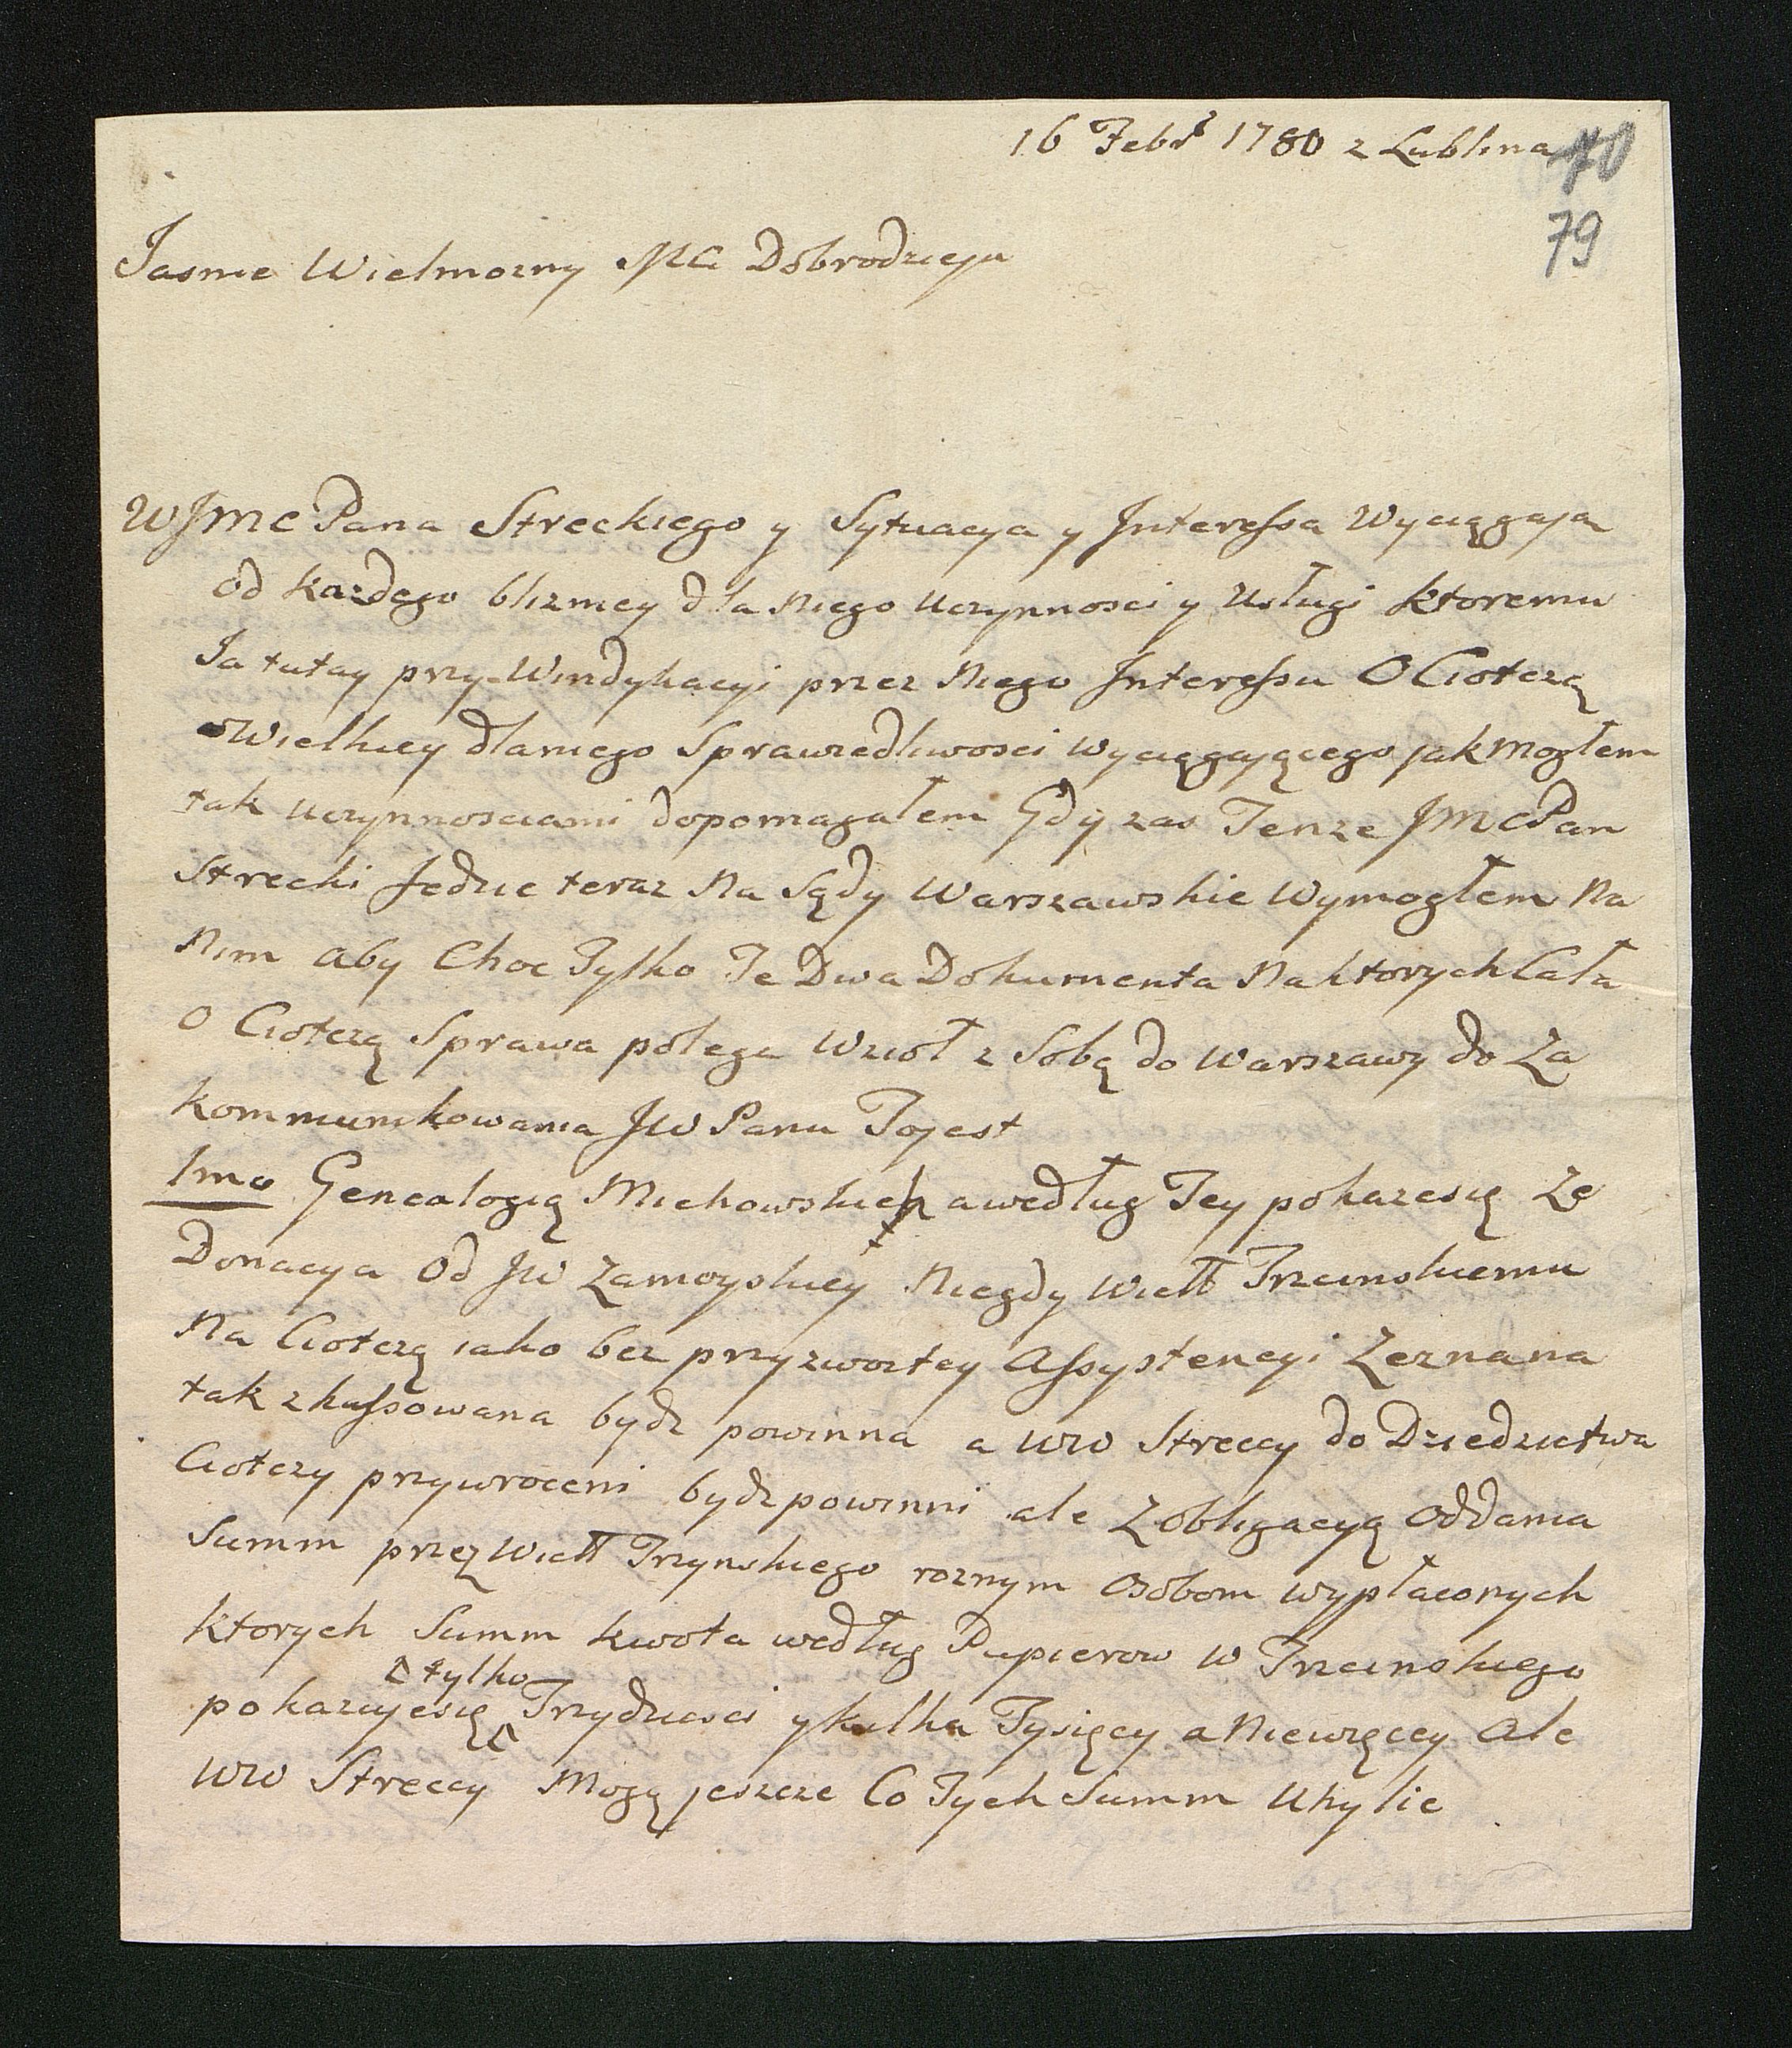 16 Febr 1780 z Lublina
79
Jasnie Wielmozny Mci Dobrodzieju
WJmc Pana Streckiego y Sytuacya y Interessa Wyciągają
od każdego blizniey dla niego uczynnosci y Usługi ktoremu
Ja tutay przy Windykacyi przez niego Interessu O Ciotczą
Wielkiey dlaniego Sprawiedliwosci wyciągającego jak mogłem
tak uczynnosciami dopomagałem Gdy zas Tenze JmcPan
Strecki Jedzie teraz Na Sądy Warszawskie Wymogłem Na
Nim aby Choc Tylko Te Dwa Dokumenta Naktorych Cała
O Ciotczą Sprawa polega Wzioł z Sobą do Warszawy do Za
kommunikowania JW Panu Tojest
1mo Genealogią Michowskich awedług Tey pokazesię Ze
Donacya Od JW Zamoyskiey Niegdy Wiell Trzcinskiemu
Na Ciotczą iako bez przyzwoitey Assystencyi Zeznana
tak zkassowana bydz powinna a WW Streccy do Dziedzictwa
Ciotczy przywroceni bydz powinni ale Zobligacyą Oddania
Summ przez Wiell Trzynskiego roznym Osobom wypłaconych
ktorych Summ kwota według Papierow W Trzcinskiego
tylko
pokazujesię Trzydziesci ykilka Tysięcy a Niewięcey Ale
WW Streccy Mogą jeszcze Co Tych Summ Uhylic